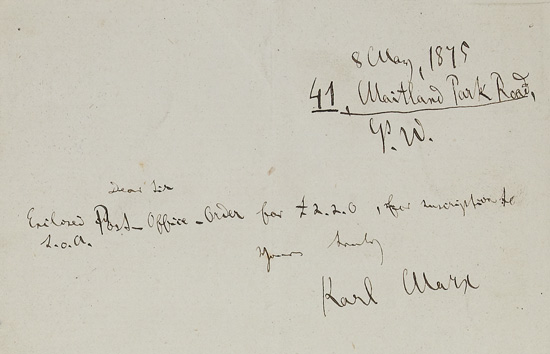 8 May, 1875
41, Maitland Park Road,
N.W.
Dear Sir
Enclosed Post-Office-Order for £2.2.0, for inscription to
Yours truly
Karl Marx